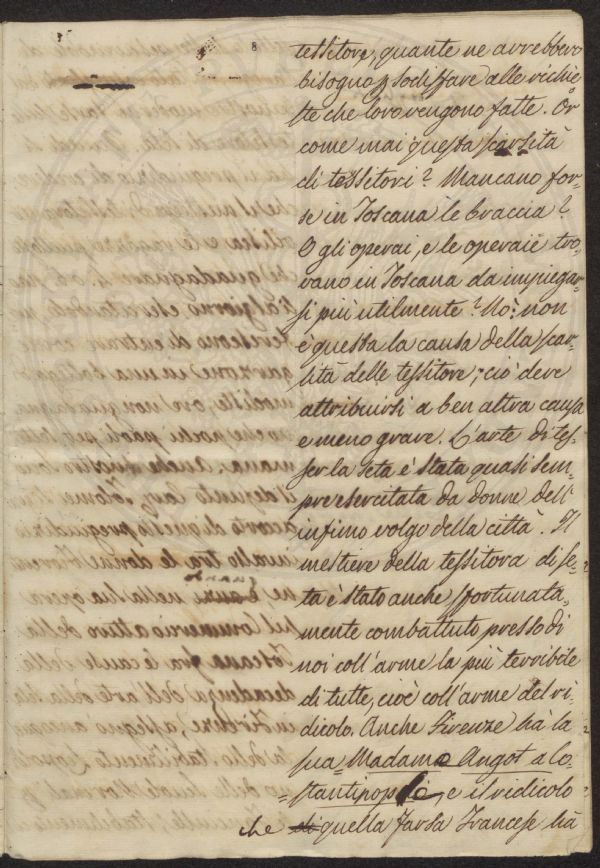 8
tessitore, quante ne avrebbero
bisogno p sodisfare alle richie-
ste che loro vengono fatte. Or
come mai questa scarsità
di tessitori? Mancano for-
se in Toscana le braccia?
O gli operai, e le operaie tro-
vano in Toscana da impiegar-
si più utilmente? No: non
è questa la causa della scar-
sità delle tessitore; ciò deve
attribuirsi a ben altra causa
e meno grave. L'arte di tes-
ser la seta è stata quasi sem-
pre esercitata da donne dell'
infimo volgo della città. Il
mestiere della tessitora di se-
ta è stato anche sfortunata-
mente combattuto presso di
noi coll'arme la più terribile
di tutte, cioè coll'arme del ri-
dicolo. Anche Firenze hà la
sua Madame Angot a Co-
stantinopoli, e il ridicolo
che di quella Farsa Francese hà